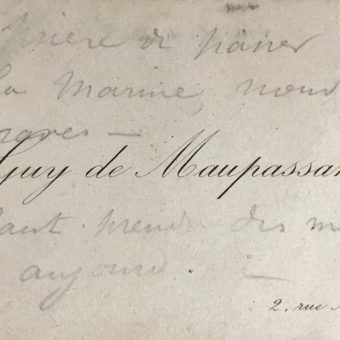 Prière de passer
la Marine, nous
graves —
Guy de Maupassan
faut prendre des me
aujourd
2, rue